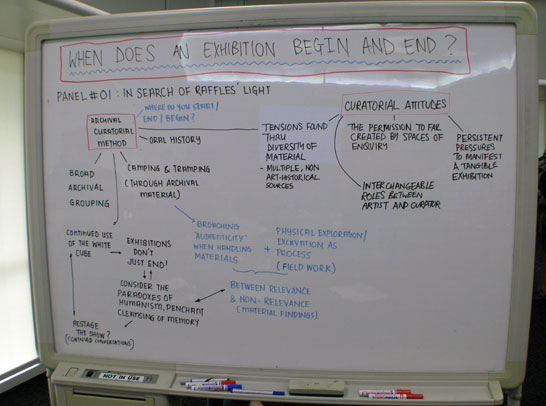 WHEN DOES AN EXHIBITION BEGIN AND END?
PANEL #01: IN SEARCH OF RAFFLES' LIGHT
WHERE DO YOU START/
END/BEGIN?
ARCHIVAL
CURATORIAL
METHOD
ORAL HISTORY
BROAD
ARCHIVAL
GROUPING
CAMPING & TRAMPING
(THROUGH ARCHIVAL
MATERIAL)
TENSIONS FOUND
THRU
DIVERSITY OF
MATERIAL
- MULTIPLE, NON
ART-HISTORICAL
SOURCES
CURATORIAL ATTITUDES
THE PERMISSION TO FAIL
CREATED BY SPACES OF
ENQUIRY
PERSISTENT
PRESSURES
TO MANIFEST
A TANGIBLE
EXHIBITION
INTERCHANGEABLE
ROLES BETWEEN
ARTIST AND CURATOR
BROACHING
"AUTHENTICITY"
WHEN HANDLING
MATERIALS
+
PHYSICAL EXPLORATION/
EXCAVATION AS
PROCESS
(FIELD WORK)
BETWEEN RELEVANCE
& NON-RELEVANCE
(MATERIAL FINDINGS)
CONTINUED USE
OF THE WHITE
CUBE
EXHIBITIONS
DON'T
JUST END!
CONSIDER THE
PARADOXES OF
HUMANISM, PENCHANT
CLEANSING OF MEMORY
RESTAGE
THE SHOW?
(CONTINUE CONVERSATIONS)
NOT IN USE